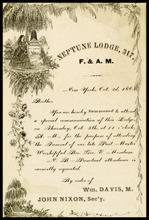 NEPTUNE LODGE, 317,
F. & A. M.
New York, Oct. 2d, 188
Brother
You are hereby SUMMONED to attend
a special communication of this Lodge
on Thursday, Oct. 5th, at 11 o'clock,
A. M., for the purpose of attending
the Funeral of our late Past Master
Worshipful Bro.
N. B.—Punctual attendance is
earnestly requested.
By order of
WM. DAVIS, M.
JOHN NIXON, Sec'y.